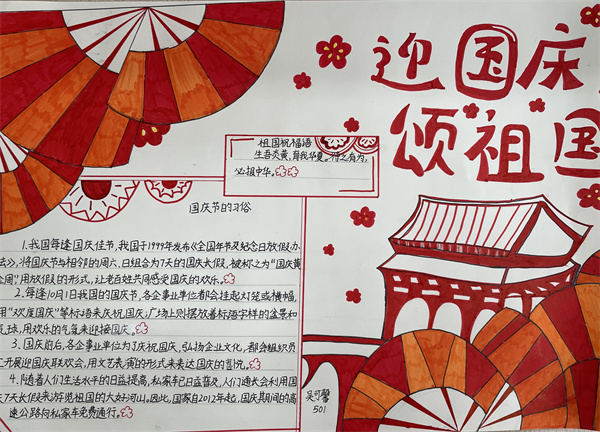 迎国庆
颂祖国
祖国祝福语
生吾炎黄，育我华夏。待之有为，
必报中华。
国庆节的习俗
1.我国每逢国庆佳节，我国于1999年发布《全国年节及纪念日放假办
法》，将国庆节与相邻的周六、日组合为7天的国庆长假，被称之为"国庆黄
金周"，用放假的形式，让老百姓共同感受国庆的欢乐。
2.每逢10月1日我国的国庆节，各企事业单位都会挂起灯笼或横幅，
用"欢度国庆"等标语来庆祝国庆；广场上则摆放着标语字样的盆景和
气球，用欢乐的气氛来迎接国庆。
3.国庆前后，各企事业单位为了庆祝国庆，弘扬企业文化，都会组织员
工开展迎国庆联欢会，用文艺表演的形式来表达国庆的喜悦。
4.随着人们生活水平的日益提高，私家车已日益普及，人们通过会利用国
庆7天长假来游览祖国的大好河山。因此，国家自2012年起，国庆期间的高
速公路向私家车免费通行。
吴可馨
501